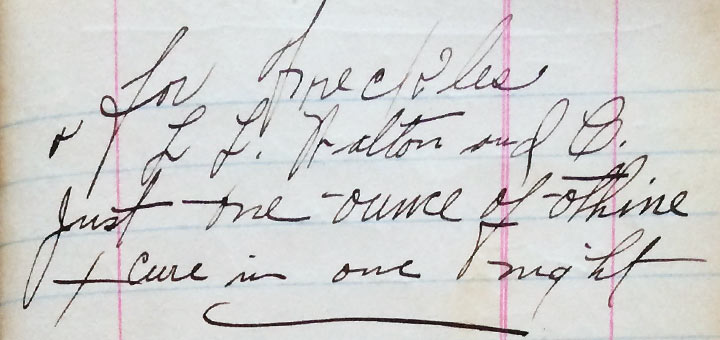 for Freckles
L L. Walton and C.
Just one ounce of othine
+ cure in one night